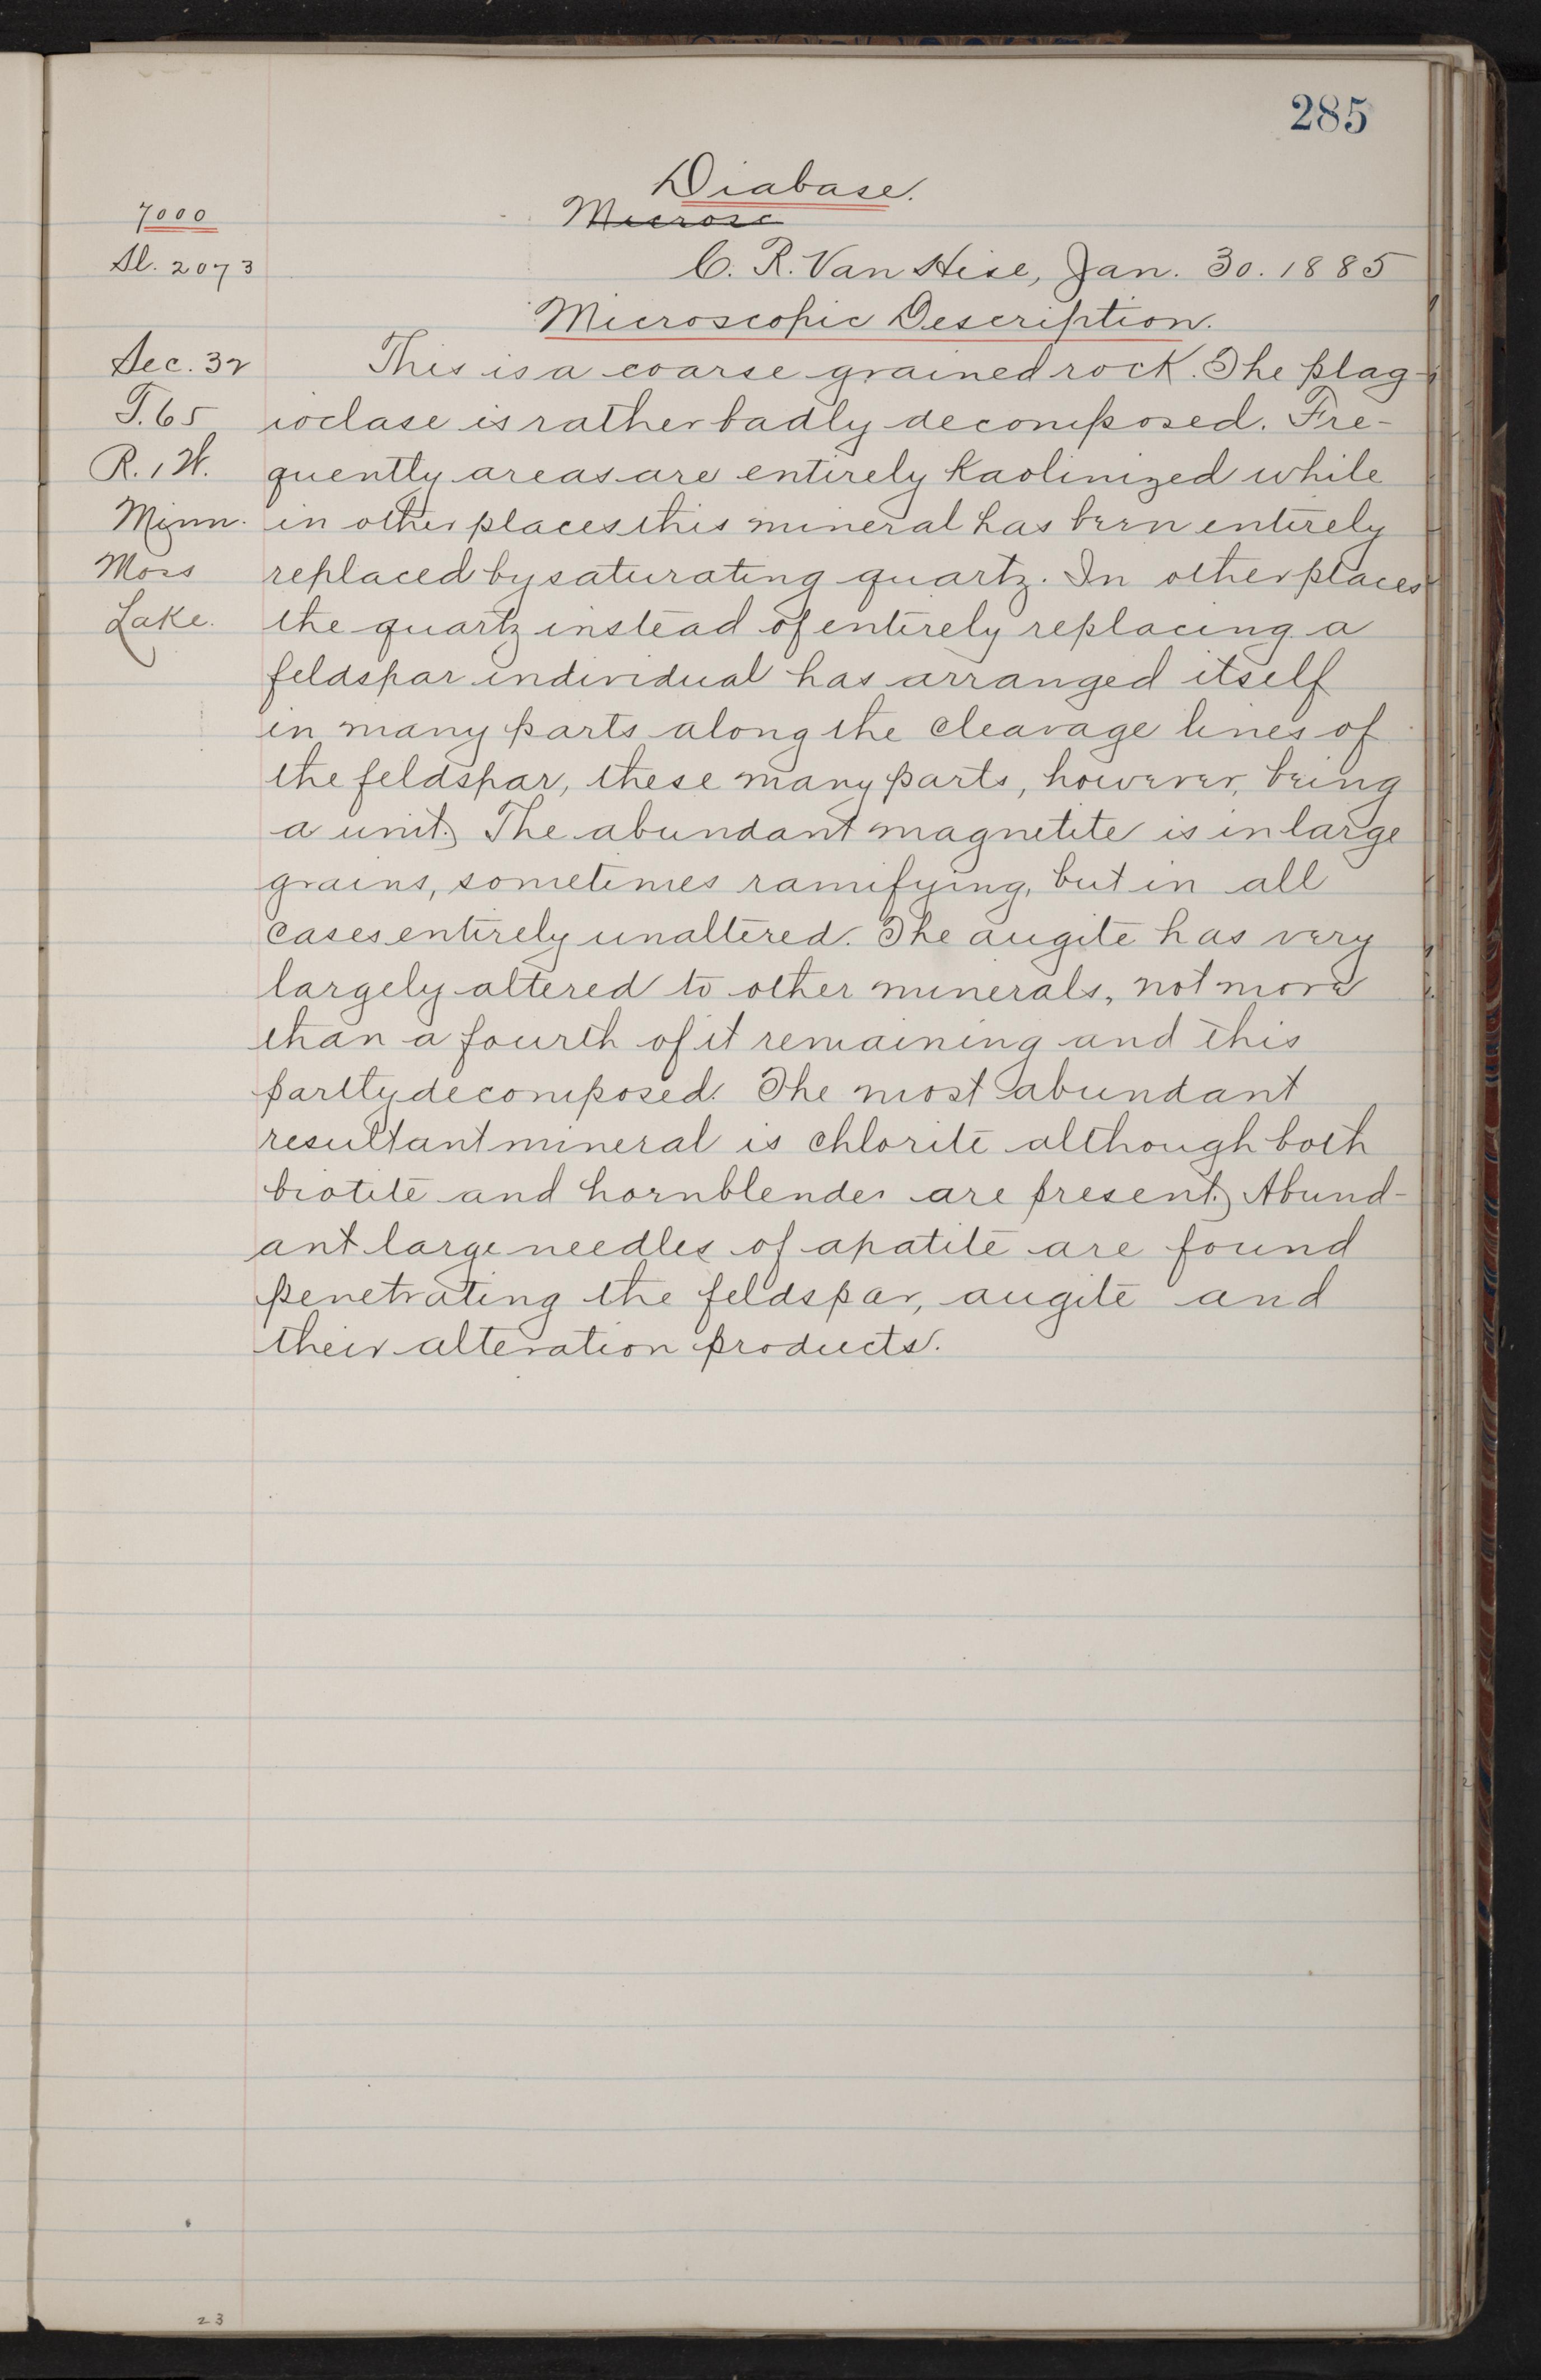 285
Diabase.
7000
Microsc
Sl. 2073
C. R. Van Hise, Jan. 30. 1885
Microscopic Description.
Sec. 32
This is a coarse grained rock. The plag-
T. 65
ioclase is rather badly decomposed. Fre-
R. 1 W.
quently areas are entirely kaolinized while
Minn.
in other places this mineral has been entirely
Moss
replaced by saturating quartz. In other places
Lake.
the quartz instead of entirely replacing a
feldspar individual has arranged itself
in many parts along the cleavage lines of
the feldspar, these many parts, however, being
a unit. The abundant magnetite is in large
grains, sometimes ramifying, but in all
cases entirely unaltered. The augite has very
largely altered to other minerals, not more
than a fourth of it remaining and this
partly decomposed. The most abundant
resultant mineral is chlorite although both
biotite and hornblende are present. Abund-
ant large needles of apatite are found
penetrating the feldspar, augite and
their alteration products.
23